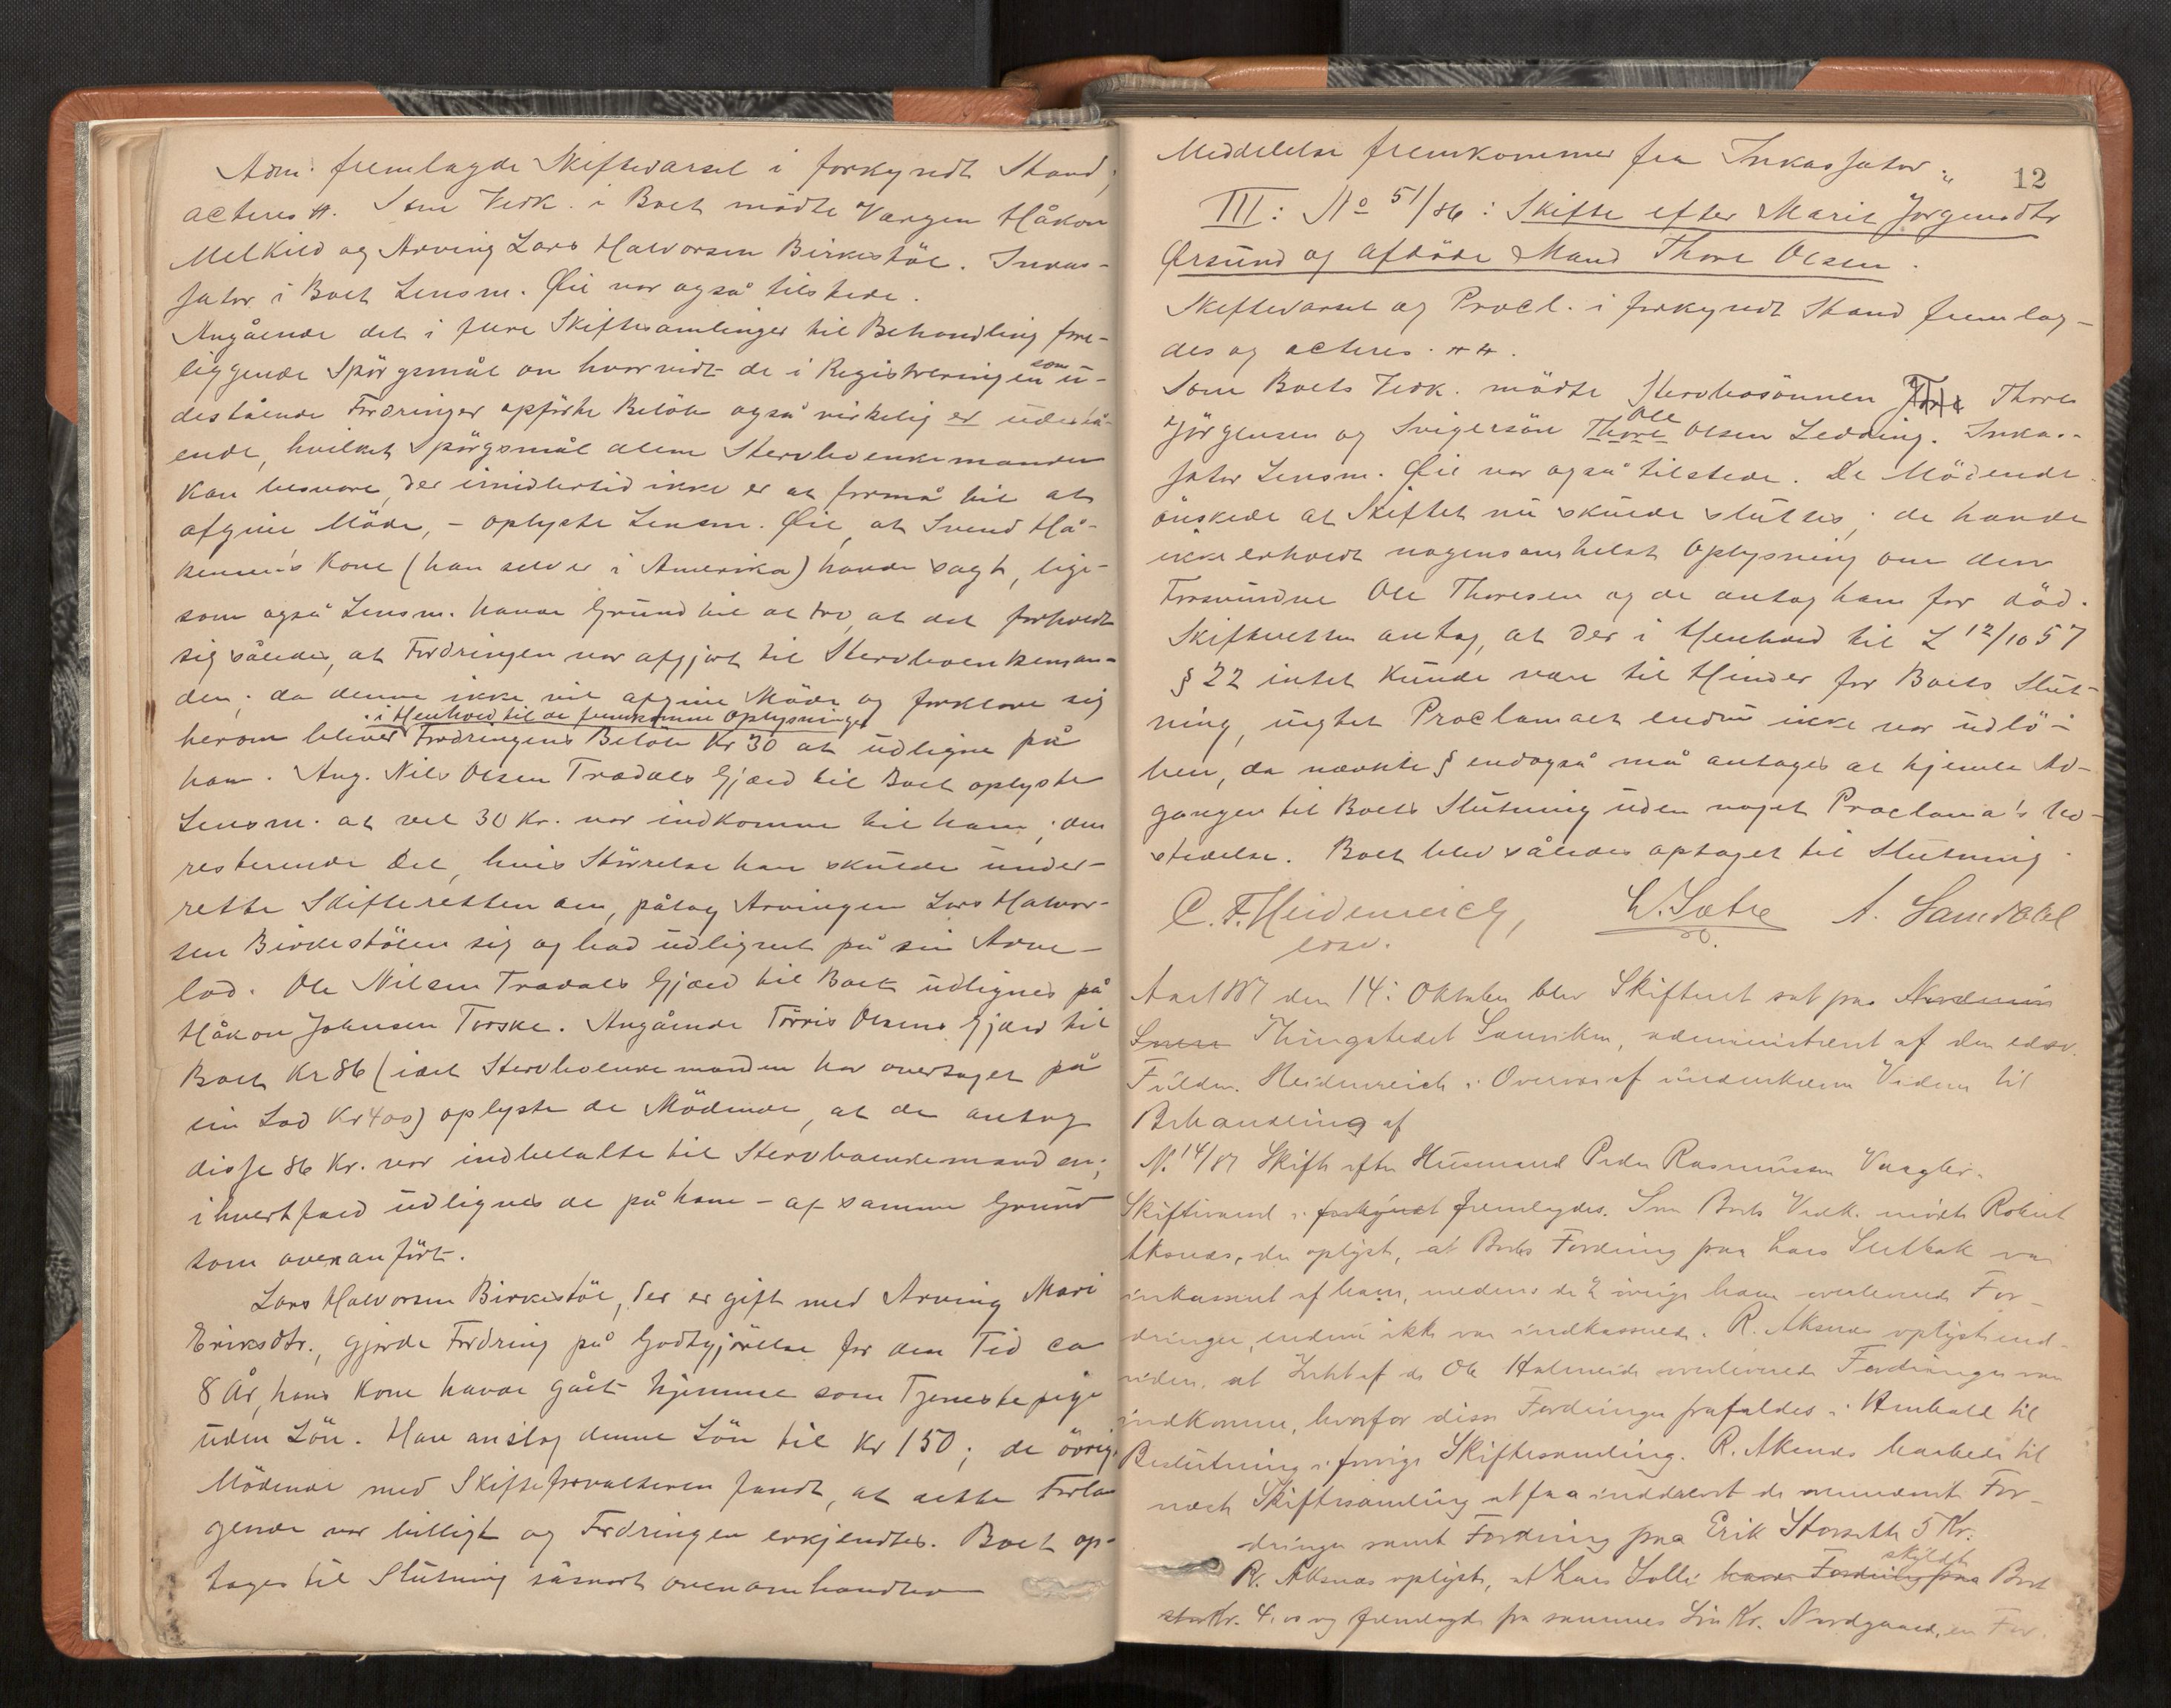 Adm. fremlagde Skiftevarsel i forkyndt Stand;
acteres #. Som Vedk. i Boet mödte Værgen Håkon
Melkild og Arving Lars Halvorsen Birkestöl. Inkas-
sator i Boet Lensm. Øie var også tilstede.
Angående det i flere Skiftesamlinger til Behandling fore-
liggende Spörgsmål om hvorvidt de i Registreringen som u-
destående Fordringer opförte Belöb også virkelig er udestå-
ende, hvilket Spörgsmål alene Stervboenkemanden
kan besvare, der imidlertid ikke er at formå til at
afgive Möde, - oplyste Lensm. Øie, at Svend Hå-
kensens Kone (han selv er i Amerika) havde sagt, lige-
som også Lensm. havde Grund til at tro, at det forholdt
sig således, at Fordringen var afgjort til Stervboenkeman-
den; da denne ikke vil afgive Möde og forklare sig
herom bliver i Henhold til de fremkomne Oplysninger Fordringens Belöb Kr 30 at udligne på
ham. Ang. Nils Olsen Trædals Gjæld til Boet oplyste
Lensm. at vel 30 Kr. var indkomne til ham; den
resterende Del, hvis Störrelse han skulde under-
rette Skifteretten om, påtog Arvingen Lars Halvor-
sen Birkestölen sig og bad udlignet på sin Arve-
lod. Ole Nilsen Trædals Gjæld til Boet udlignes på
Håkon Johnsen Torske. Angående Törris Olsens Gjæld til
Boet Kr 86 (idet Stervboenkemanden har overtaget på
sin Lod Kr 400) oplyste de Mödende, at de antog
disse 86 Kr. var indbetalte til Stervboenkemanden;
ihvertfald udlignes de på ham - af samme Grund
som ovenanfört.
Lars Halvorsen Birkestöl, der er gift med Arving Mari
Eriksdtr., gjorde Fordring på Godtgjörelse for den Tid ca
8 År, hans Kone havde gået hjemme som Tjenestepige
uden Lön. Han anslog denne Lön til Kr 150; de övrige
Mödende med Skifteforvalteren fandt, at dette Forlan
gende var billigt og Fordringen erkjendtes. Boet op-
tages til Slutning såsnart ovenomhandlede
12
Meddelelse fremkommer fra Inkassator.
III: No 51/86: Skifte efter Marit Jörgensdtr
Ørsund og afdöde Mand Thore Olsen.
Skiftevarsel og Procl. i forkyndt Stand fremlag-
des og acteres. # #.
Som Boets Vedk. mödte Stervbosönnen Thore
Jörgensen og Svigersön Thore Ole Olsen Ledding. Inkas-
sator Lensm. Øie var også tilstede. De Mödende
önskede at Skiftet nu skulde sluttes; de havde
ikke erholdt nogensomhelst Oplysning om den
Forsvundne Ole Thoresen og de antog ham for död.
Skifteretten antog, at der i Henhold til L 12/10 57
§ 22 intet kunde være til Hinder for Boets Slut-
ning, uagtet Proclamaet endnu ikke var udlö-
ben, da nævnte § endogså må antages at hjemle Ad-
gangen til Boets Slutning uden noget Proclama's Ud-
stedelse. Boet blev således optaget til Slutning.
C. F. Heidenreich, L. Sætre A. Samdahl
edsv.
Aar 1887 den 14: Oktober blev Skifteret sat paa Nordmøre
Thingstedet Saurviken, administreret af den edsv.
Fuldm. Heidenreich i Overvær af underskrevne Vidner til
Behandling af
N. 14/87 Skifte efter Husmand Peder Rasmussen
Skiftevarsel i forkyndt fremlagdes. Som Boets Vedk. mödte
Aksnes, der oplyste, at Boets Fordring paa Lars var
inkasseret af ham, medens de 2 övrige ham overleverede For-
dringer, endnu ikke var indkasserede. R. Aksnes oplyste end-
viden, at Intet af de Ole Halmeide overleverede Fordringer var
indkomne, hvorfor disse Fordringer frafaldes i Henhold til
Beslutning i forrige Skiftesamling. R. Aksnes haabede til
næste Skiftesamling at faa inddrevet de For-
dringer samt Fordring paa Erik Storsæth 5 Kr.
R. Aksnes oplyste, at Lars Solli havde Fordring paa skyldt Boet
Kr. 4. og fremlagde fra sammes Nordgaard, en For-